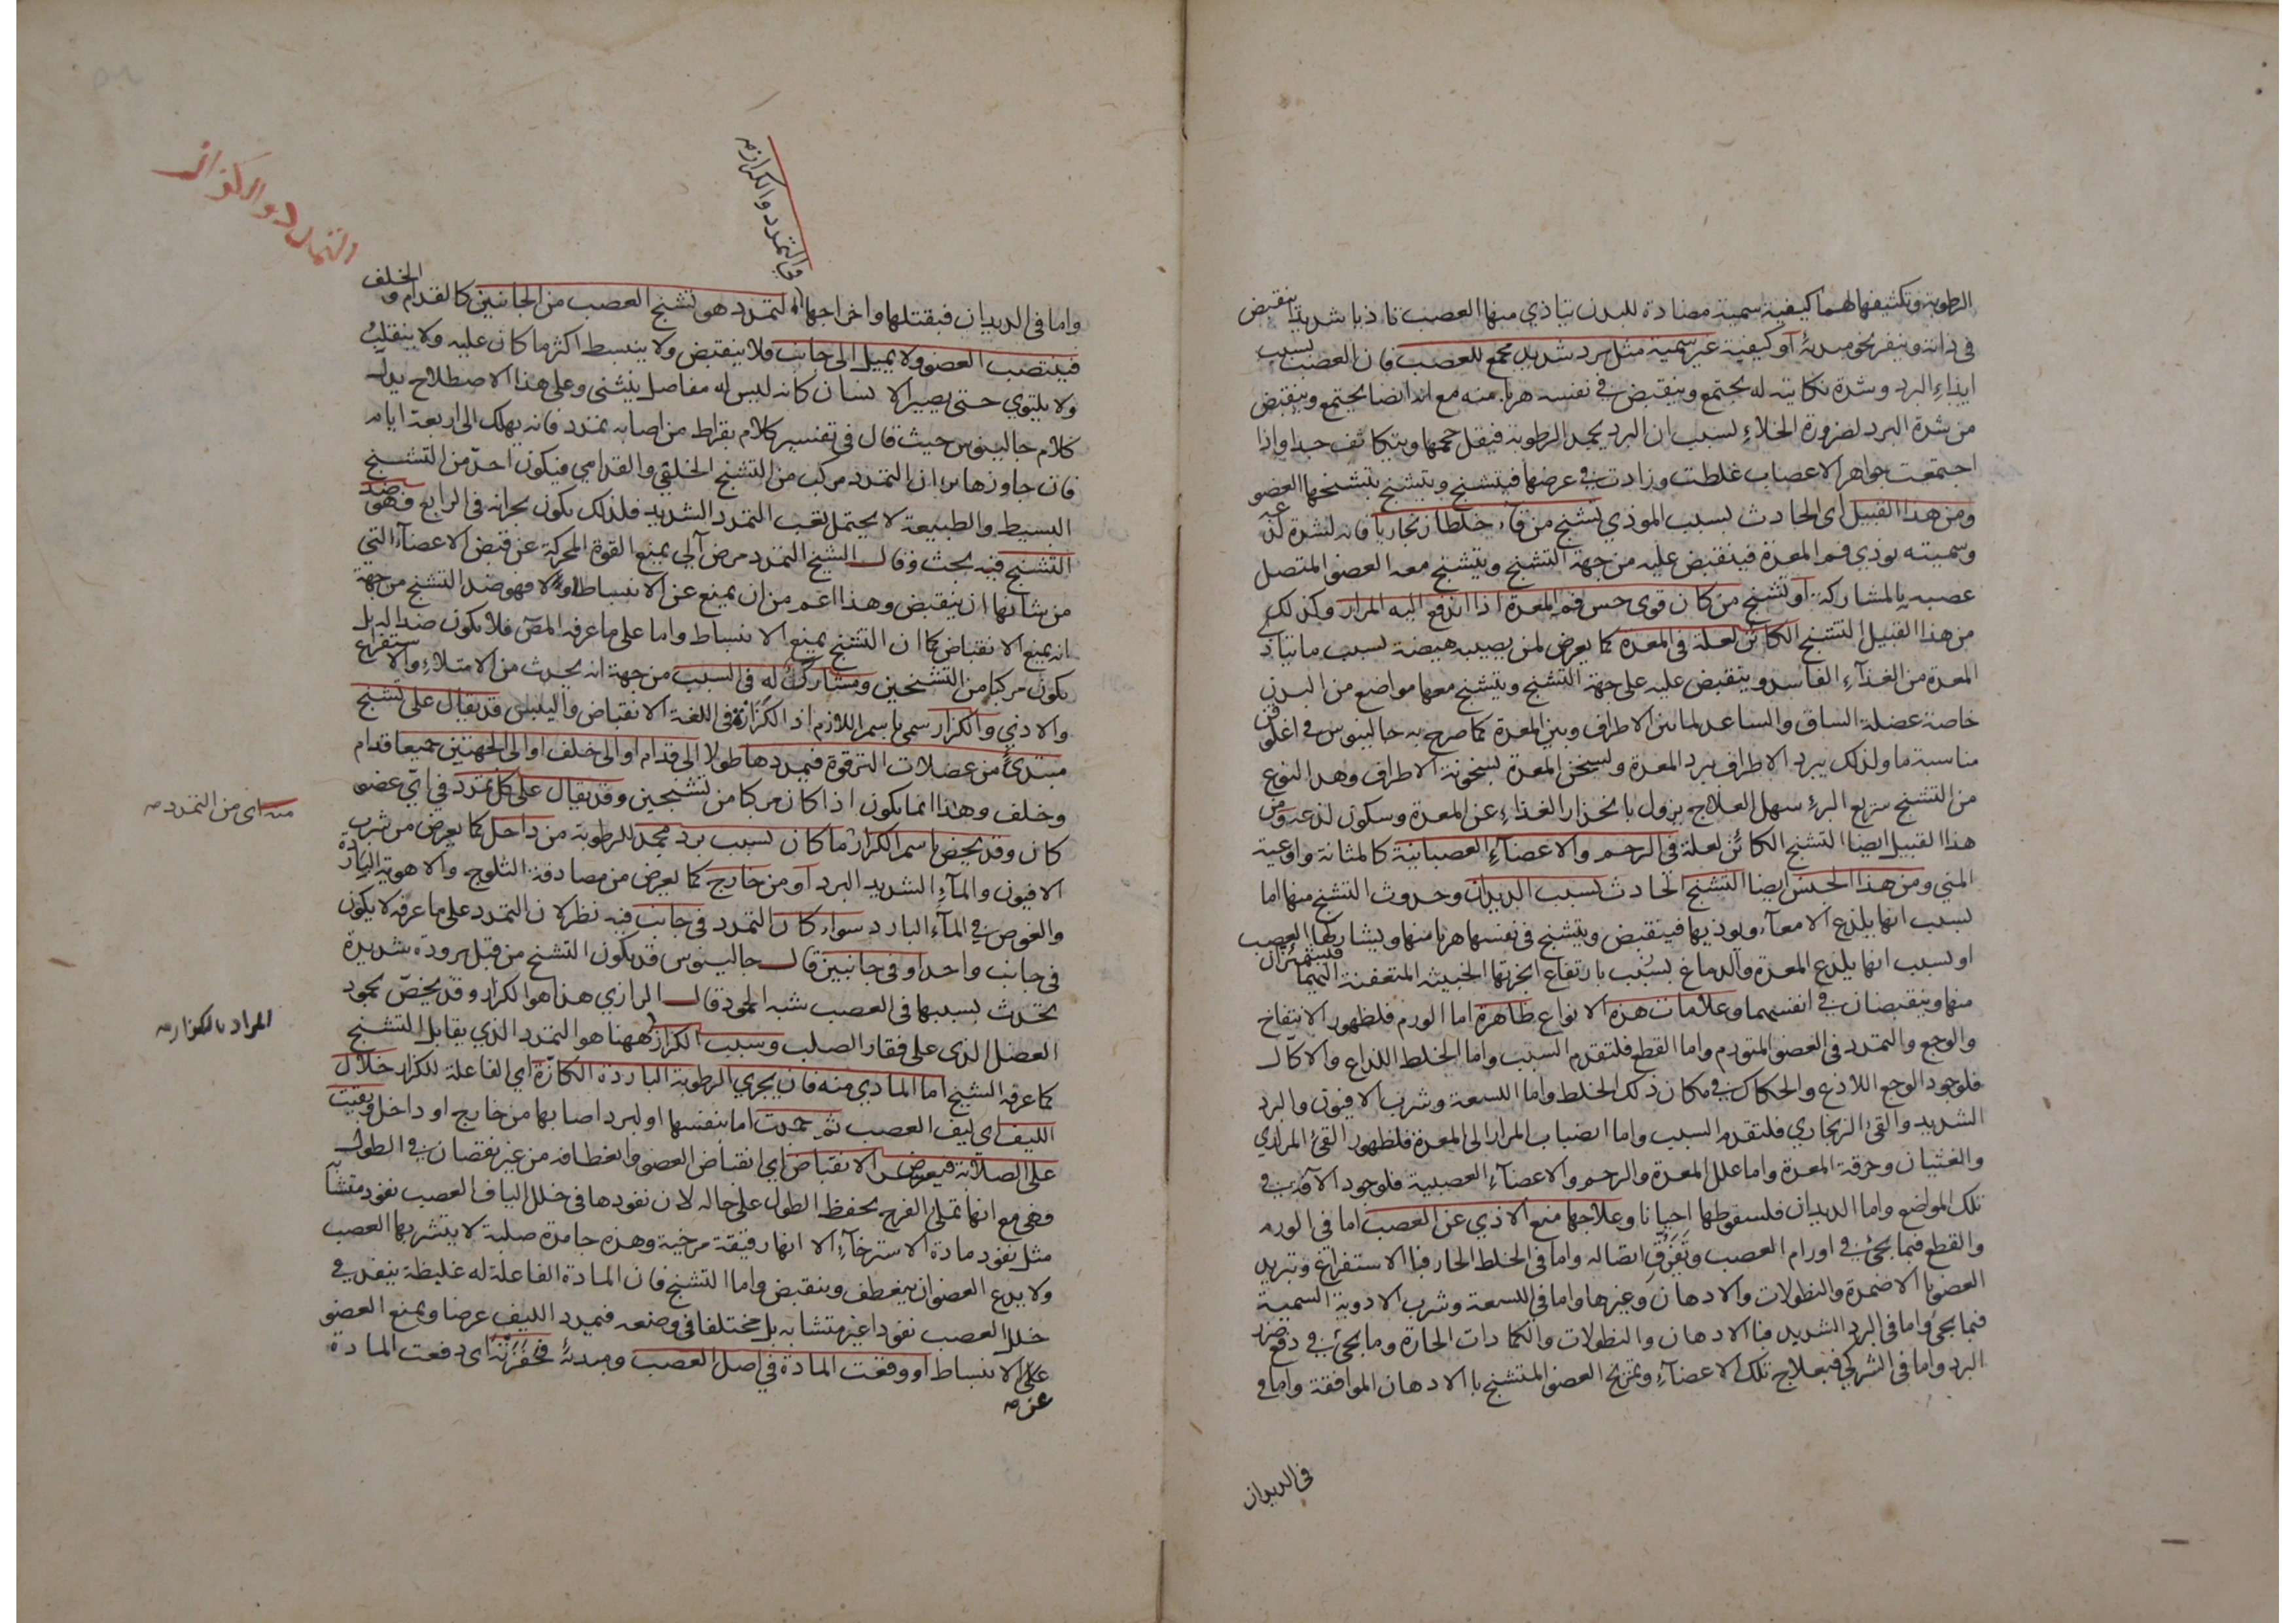 الرطوبة وتكثيفها لهما كيفية سمية مضادة للبدن يتاذي منها العصب تاذيا شديدا ينقبض
في ذاته وينفر نحو مبدئه او كيفية غير سمية مثل برد شديد مجمع للعصب فان العصب بسبب
ايذاء البرد وشدة نكايته له يجتمع وينقبض في نفسه هربا منه مع انه ايضا يجتمع وينقبض
من شدة البرد لضرورة الخلاء لسبب ان البرد يجمد الرطوبة فيقل حجمها ويتكاثف جدا واذا
اجتمعت جواهر الاعصاب غلظت وزادت في عرضها فيتشنج ويتشنج بتشنجها العضو
ومن هذا القبيل اي الحادث بسبب الموذي تشنج من قاء خلطا زنجاريا فانه لشدة لذعه
وسميته يوذي فم المعدة فينقبض عليه من جهة التشنج ويتشنج معه العضو المتصل
عصبه به بالمشاركة او تشنج من كان قوي حس فم المعدة اذا اندفع اليه المرار وكذلك
من هذا القبيل التشنج الكائن لعلة في المعدة كما يعرض لمن يصيبه هيضة بسبب ما يتاذي
المعدة من الغذاء الفاسد وينقبض عليه على جهة التشنج ويتشنج معها مواضع من البدن
خاصة عضلة الساق والساعد لما بين الاطراف وبين المعدة كما صرح به جالينوس في اغلوقن
مناسبة ما ولذلك يبرد الاطراف ببرد المعدة ويسخن المعدة بسخونة الاطراف وهذا النوع
من التشنج سريع البرء سهل العلاج يزول بانحدار الغذاء عن المعدة وسكون لذعه ومن
هذا القبيل ايضا التشنج الكائن لعلة في الرحم والاعضاء العصبانية كالمثانة واوعية
المني ومن هذا الجنس ايضا التشنج الحادث بسبب الديدان وحدوث التشنج منها اما
بسبب انها يلذع الامعاء ويوذيها فينقبض ويتشنج في نفسها هربا منها ويشاركها العصب
او بسبب انها يلذع المعدة والدماغ بسبب بارتفاع ابخرتها الخبيثة المتعفنة اليهما فيشمئزان
منها وينقبضان في انفسهما وعلامات هذه الانواع ظاهرة اما الورم فلظهور الانتفاخ
والوجع والتمدد في العضو المتورم واما القطع فلتقدم السبب واما الخلط اللذاع والاكال
فلوجود الوجع اللاذع والحكاك في مكان ذلك الخلط واما اللسعة وشرب الافيون والبرد
الشديد والقئ الزنجاري فلتقدم السبب واما انصباب المرار الى المعدة فلظهور القئ المراري
والغثيان وحرقة المعدة واما علل المعدة والرحم والاعضاء العصبية فلوجود الآفة في
تلك المواضع واما الديدان فلسقوطها احيانا وعلاجها منع الاذي عن العصب اما في الورم
والقطع فبما يجئ في اورام العصب وتفرق اتصاله واما في الخلط الحار فبا الاستفراغ وتبريد
العضو با الاضمدة والنطولات والادهان وغيرها واما في اللسعة وشرب الادوية السمية
فبما يجئ واما في البرد الشديد فبا الادهان والنطولات والكمادات الحارة وما يجئ في دفع ضرر
البرد واما في الشركي فبعلاج تلك الاعضاء وتمريخ العضو المتشنج با الادهان الموافقة واما في
في الديدان
التمدد والكزاز
في التمدد والكزاز
واما في الديدان فبقتلها واخراجها التمدد هو تشنج العصب من الجانبين كالقدام والخلف
فينتصب العضو ولا يميل الى جانب فلا ينقبض ولا ينبسط اكثر ما كان عليه ولا ينقلب
ولا يلتوي حتى يصير الانسان كانه ليس له مفاصل ينثني وعلى هذا الاصطلاح يدل
كلام جالينوس حيث قال في تفسير كلام بقراط من اصابه تمدد فانه يهلك الى اربعة ايام
فان جاوزها برا ان التمدد مركب من التشنج الخلفي والقدامي فيكون احد من التشنج
البسيط والطبيعة لا يحتمل تعب التمدد الشديد فلذلك يكون بحرانه في الرابع فهو ضد
التشنج فيه بحث وقال الشيخ التمدد مرض آلي يمنع القوة المحركة عن قبض الاعضاء التي
من شانها ان ينقبض وهذا اعم من ان يمنع عن الانبساط اولا فهو ضد التشنج من جهة
انه يمنع الانقباض كما ان التشنج يمنع الانبساط واما على ما عرفه المص فلا يكون ضدا له بل
يكون مركبا من التشنجين ومشارك له في السبب من جهة انه يحدث من الامتلاء والاستفراغ
والاذي والكزاز سمي باسم اللازم اذ الكزازة في اللغة الانقباض واليبس قد يقال على تشنج
مبتدئ من عضلات الترقوة فيمددها طولا الى قدام او الى خلف او الى الجهتين جميعا قدام
وخلف وهذا انما يكون اذا كان مركبا من تشنجين وقد يقال على كل تمدد في اي عضو
كان وقد يخص باسم الكزاز ما كان بسبب برد مجمد للرطوبة من داخل كما يعرض من شرب
الافيون والماء الشديد البرد او من خارج كما يعرض من مصادفة الثلوج والاهوية الباردة
والغوص في الماء البارد سواء كان التمدد في جانب فيه نظر لان التمدد على ما عرفه لا يكون
في جانب واحد او في جانبين قال جالينوس قد يكون التشنج من قبل برودة شديدة
يحدث بسببها في العصب شبه الجمود قال الرازي هذا هو الكزاز وقد يخص بجمود
العضل الذي على فقار الصلب وسبب الكزاز ههنا هو التمدد الذي يقابل التشنج
كما عرفه الشيخ اما المادي منه فان يجري الرطوبة الباردة الكازة اي الفاعلة للكزاز خلال
الليف اي ليف العصب ثم جمدت اما بنفسها او لبرد اصابها من خارج او داخل وبقيت
على الصلابة فيعرض الانقباض اي انقباض العضو وانعطافه من غير نقصان في الطول
وهي مع انها تملئ الفرج يحفظ الطول على حاله لان نفوذها في خلل الياف العصب نفوذ متشابه
مثل نفوذ مادة الاسترخاء الا انها رقيقة مرخية وهذه جامدة صلبة لا يتشربها العصب
ولا يدع العضو ان ينعطف وينقبض واما التشنج فان المادة الفاعلة له غليظة ينفذ في
خلل العصب نفوذا غير متشابه بل مختلفا في وضعه فيمدد الليف عرضا ويمنع العضو
على الانبساط او وقعت المادة في اصل العصب ومبدئه فحفزته اي دفعت المادة
عن
منه اي من التمدد
المراد بالكزاز